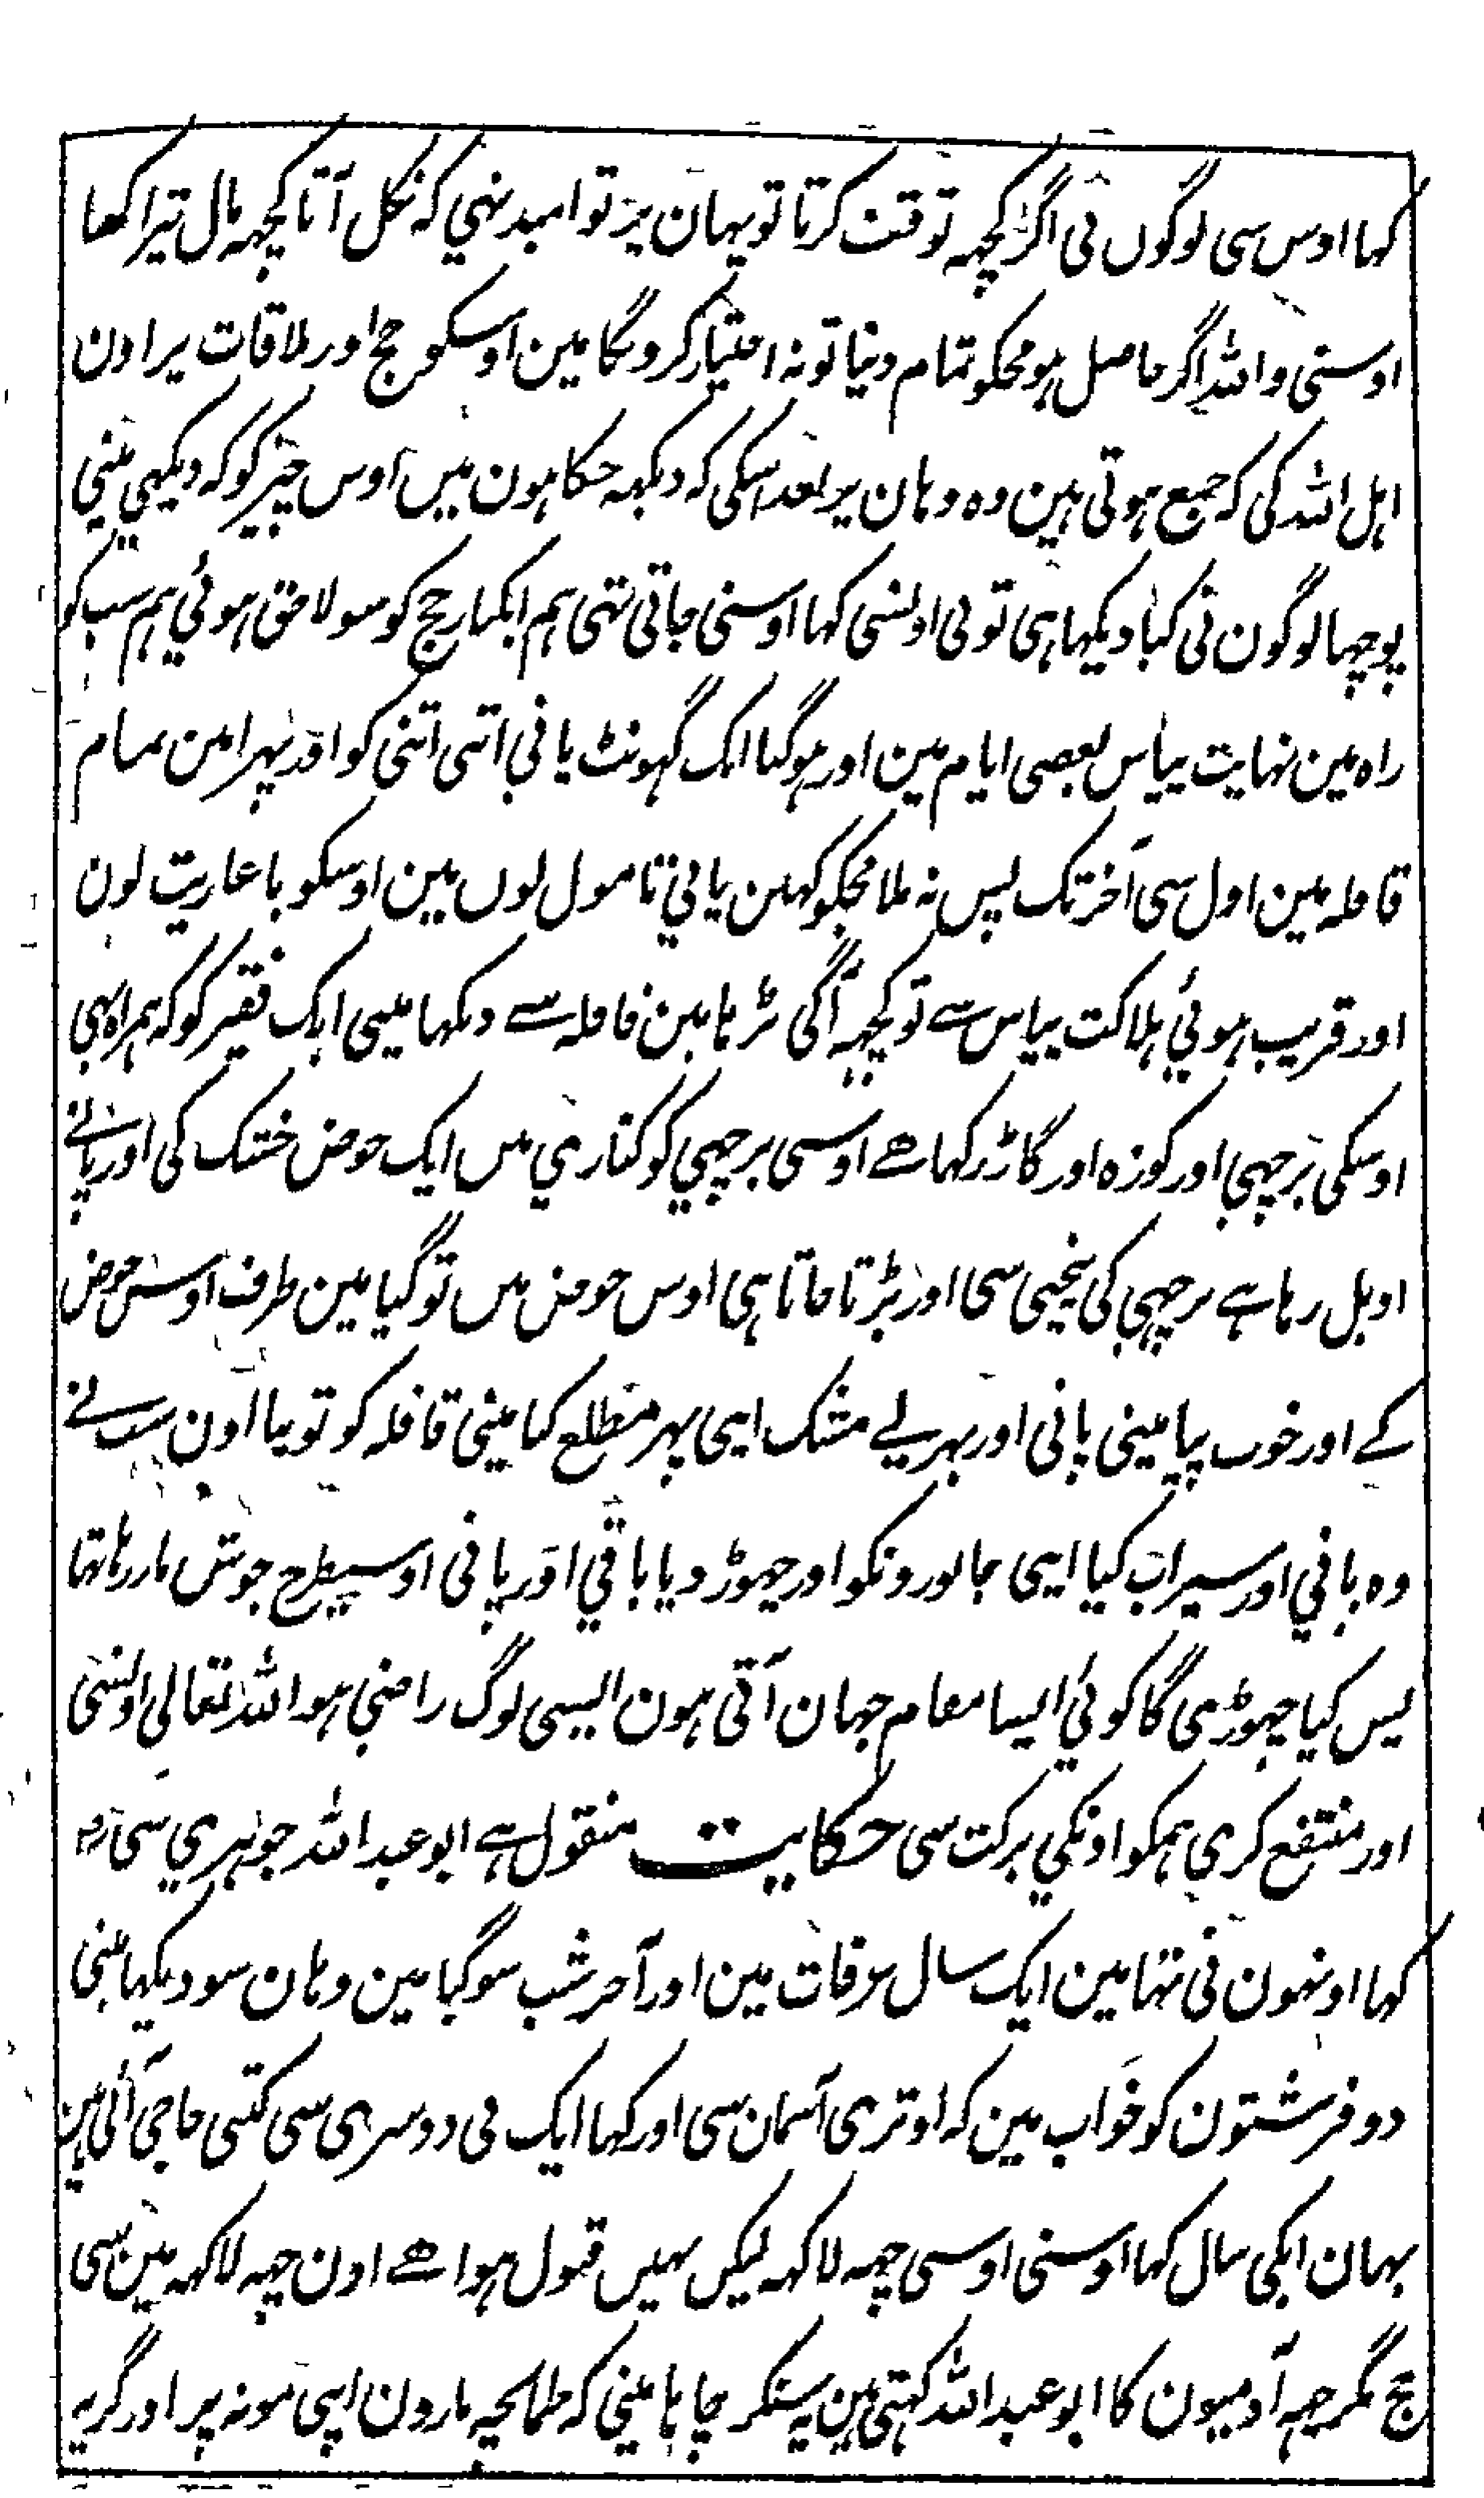 کہا اوس سی لوگوں نی اگر کچہہ توقف کرتا تو یہان پر تو امید تہی کہ نکل آتا کچہہ مال تیرا کہا
اوسنی واللہ اگر حاصل ہو مجکو تمام دنیا تو نہ اختیار کرونگا مین اوسکو حج اور ملاقات پر اون
اہل اللہ کی کہ جمع ہوتی ہین وہ وہان پر بعد اسکی کہ دیکہہ چکا ہون میں اوس چیز کو کہ دیکہی مینی
پوچہا لوگون نی کیا دیکہا ہی تو نی اونسی کہا اوسنی جاتی تہی ہم ایکبار حج کو سو لاحق ہوئی ہم سب کو
راہ مین نہایت پیاس بعضی ایام مین اور ہوگیا ایک گہونٹ پانی اتنی اتنی کو اور پہرا مین تمام
قافلہ مین اول سی آخر تک پس نہ ملا مجکو کہین پانی تا مول لوں مین اوسکو یا عاریت لون
اور قریب ہوئی ہلاکت پیاس سے تو کچہہ آگی بڑہا مین قافلہ سے دیکہا مینی ایک فقیر کو کہ ہمراہ ہی
اوسکی برچہی اور کوزہ اور گاڑ رکہا ہے اوسی برچہی کو کناری میں ایک حوض خشک کی اور پانے
اوبل رہا ہے برچہی کی نیچی سی اور بڑتا جاتا ہی اوس حوض میں تو گیا مین طرف اوس حوض
کے اور خوب پیا مینی پانی اور بہر لے مشک اپنی پہر مطلع کیا مینی قافلہ کو تو پیا اون سب نے
وہ پانی اور سیراب کیا اپنی جانورونکو اور چہوڑ دیا باقی اور پانی اوسیطرح جوش مار رہا تہا
پس کیا چہوڑی گا کوئی ایسا مقام جہان آتی ہون ایسی لوگ راضی ہو اللہ تعالی اونسی
اور منتفع کری ہمکو اونکی برکت سی حکایت منقول ہے ابو عبداللہ جوہری سی رہ
کہا اونہون نی تہا مین ایک سال عرفات مین اور آخر شب سوگیا مین وہان سو دیکہا مینی
دو فرشتون کو خواب مین کہ اوتری آسمان سی اور کہا ایک نی دوسری سی کتنی حاجی آئی ہین
یہان ابکی سال کہا اوسنی اوسی چہہ لاکہہ لیکن نہیں قبول ہوا ہے اون چہہ لاکہہ مین سی
حج مگر چہہ آدمیون کا ابو عبداللہ کہتی ہین یہ سنکر چاہا مینی کہ طمانچہ مارون اپنی مونہ پر اور گریہ